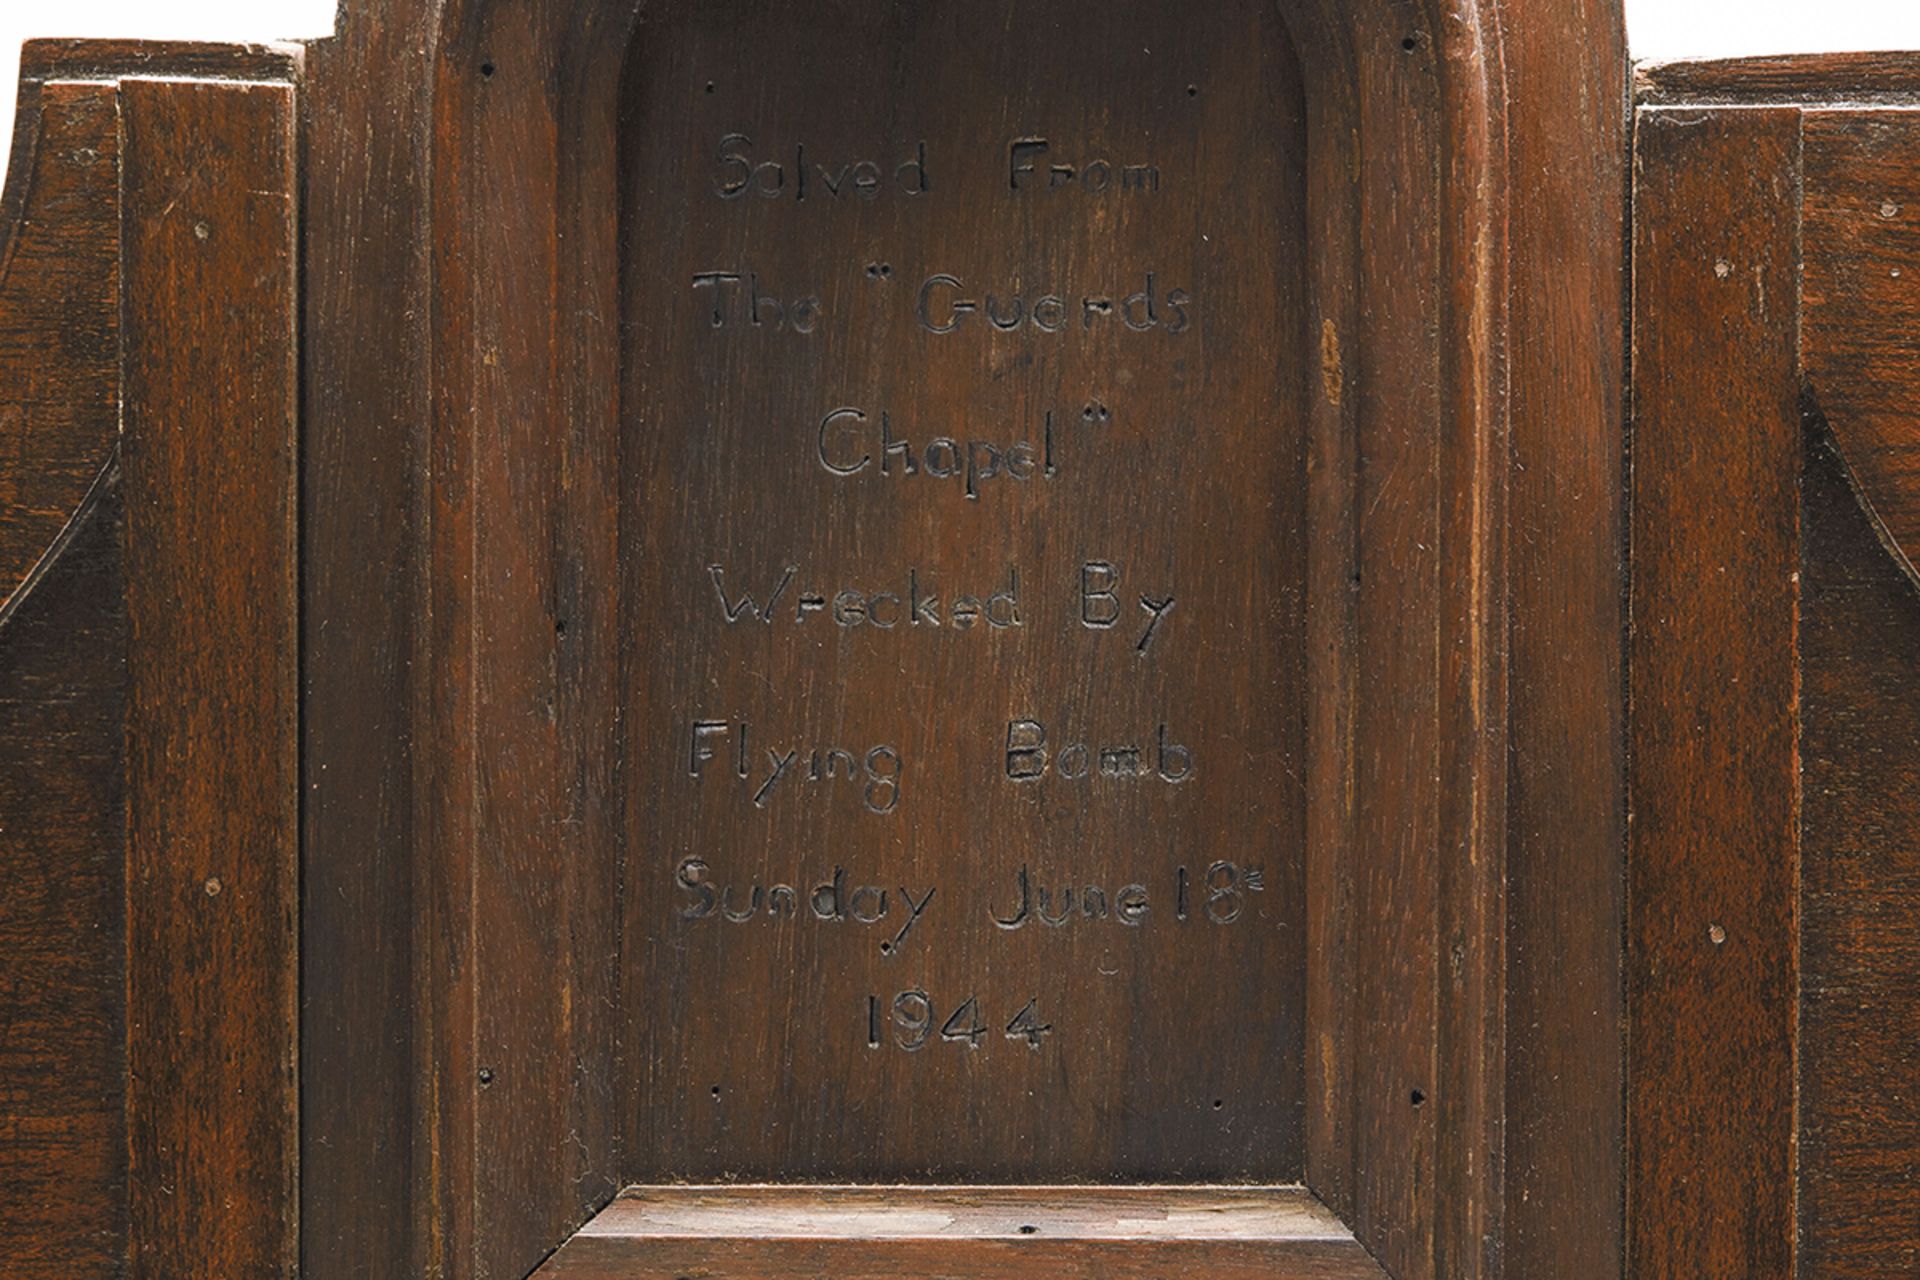 Salved From
The "Guards
Chapel"
Wrecked By
Flying Bomb
Sunday June 18"
1944